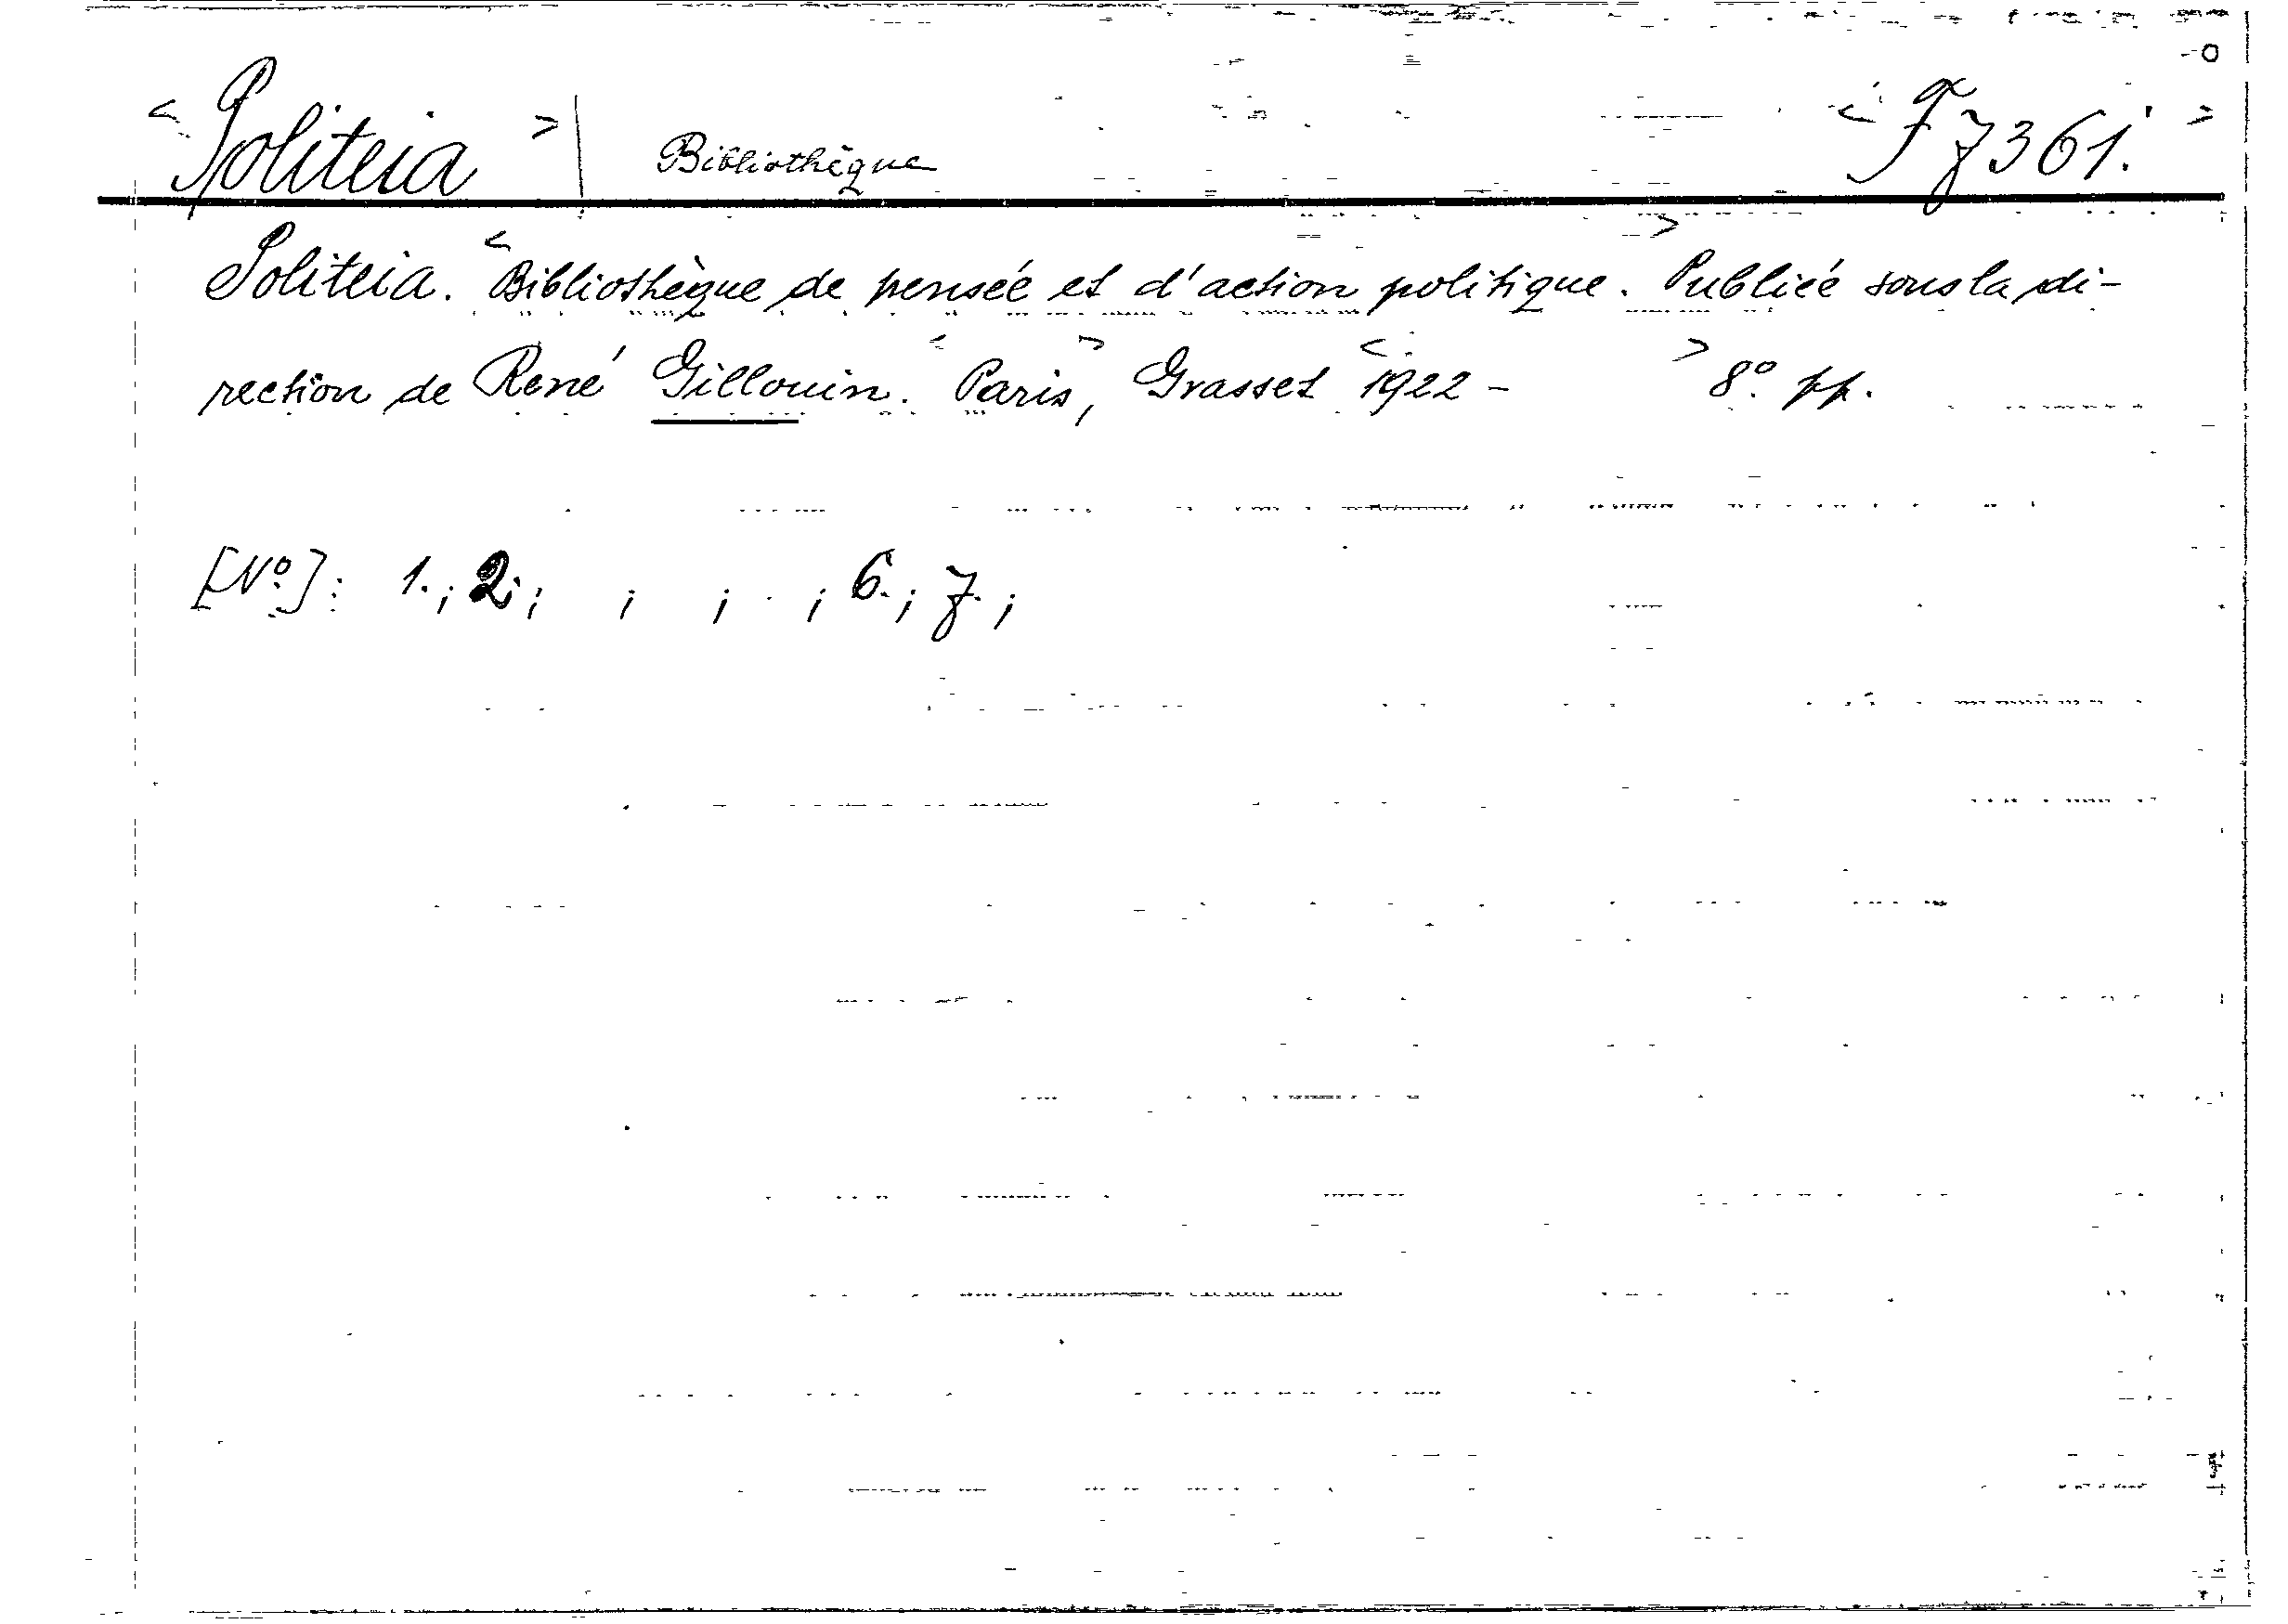 < Politeia > | Bibliothèque < F 7361. >
Politeia. < Bibliothèque de pensée et d'action politique. > Publiée sous la di-
rection de René Gillouin. < Paris, > Grasset < 1922 - > 8º. pp.
[Nº.]: 1.; 2.; ; ; ; 6.; 7.;